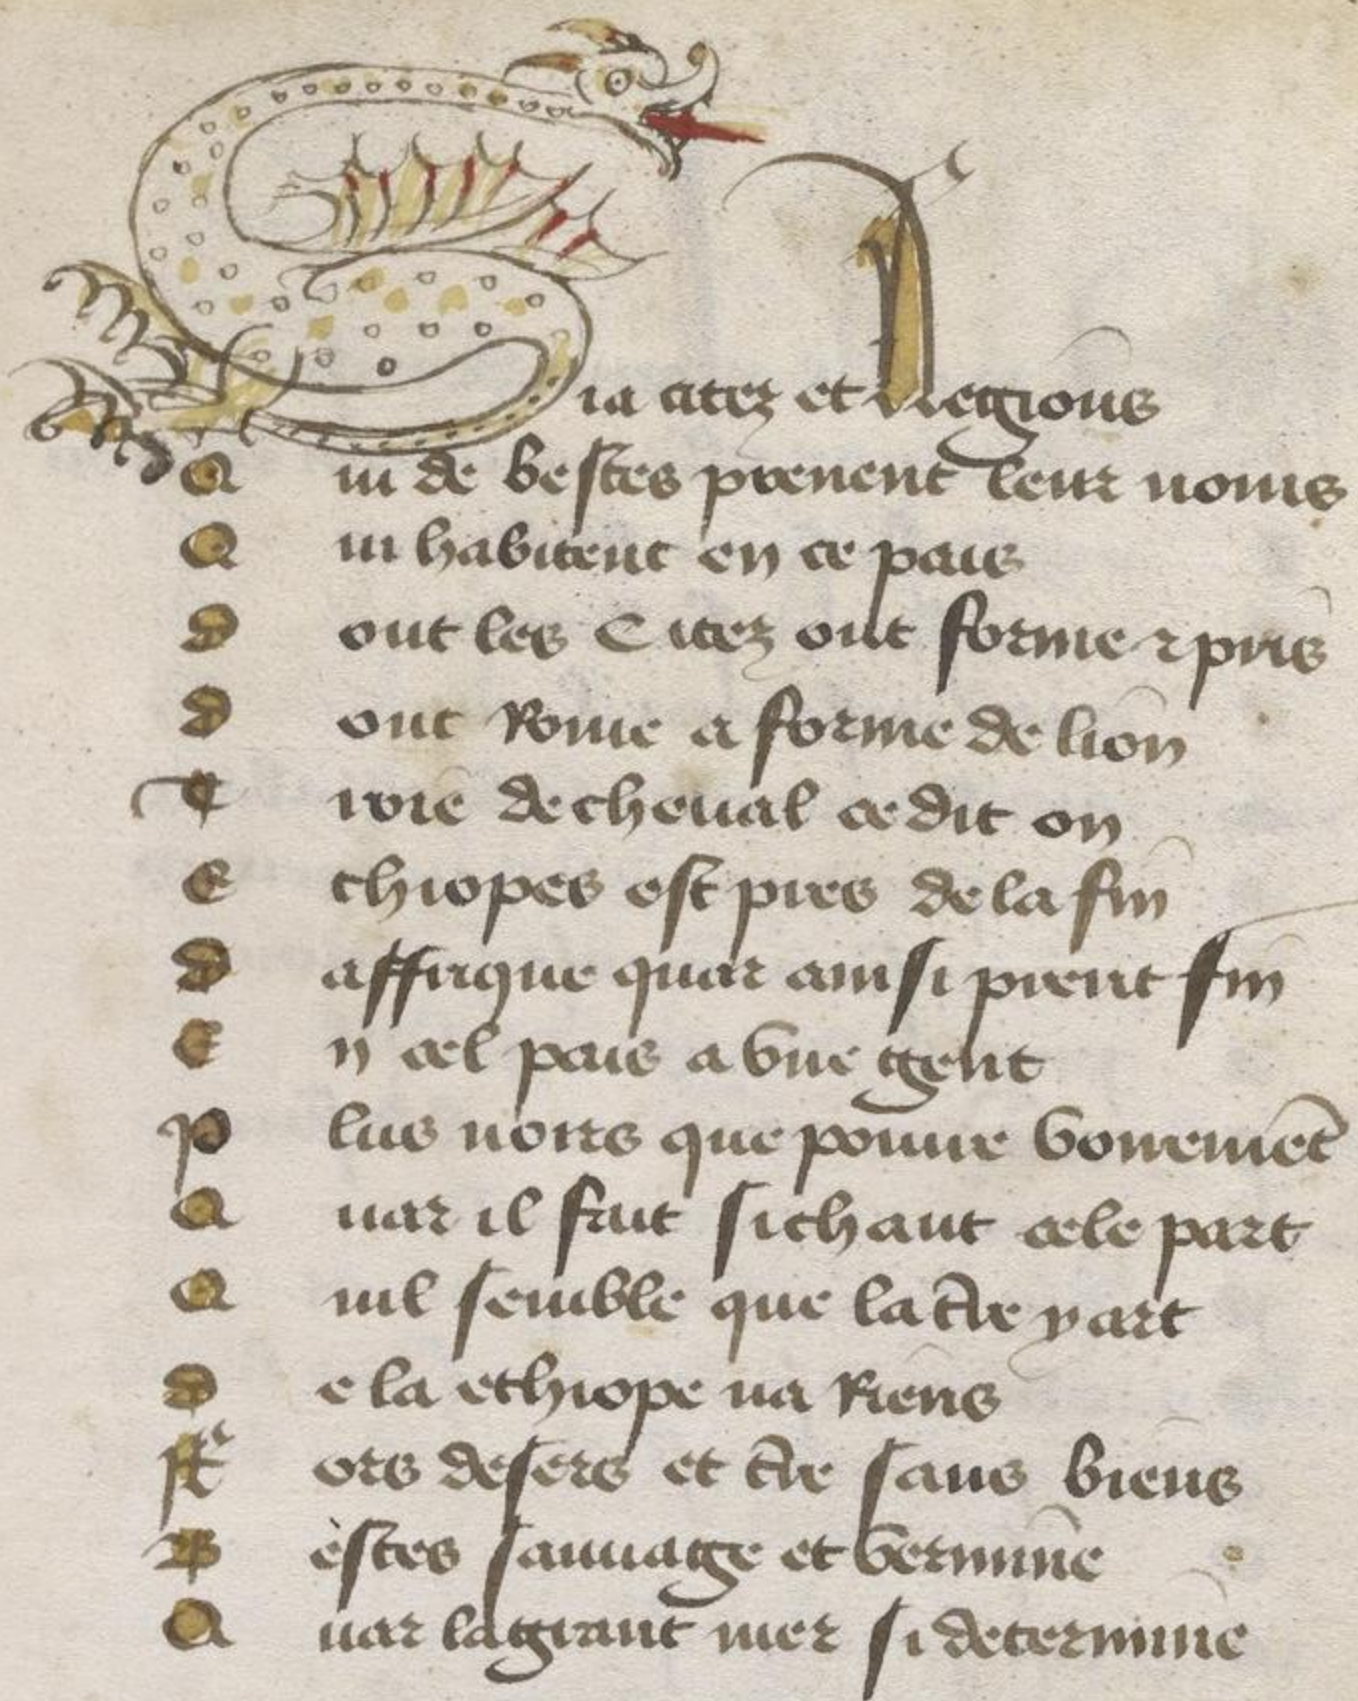 Sia citez et Regions
Qui de bestes prenent leur noms
Qui habitent en ce pais
Dont les Citez ont forme ⁊ pris
Dont Rome a forme de lion
Troie de cheual ce dit on
Ethiopes est pres de la fin
Daffrique quar ainsi prent fin
En cel pais a vne gent
Plus noirs que poiure vonemēt
Quar il fait si chaut cele part
Quil semble que la t̄re y art
De la ethiope na Riens
Fors desers et t̄re sans biens
Bestes sauuage et vermine
Quar la grant mer si determine